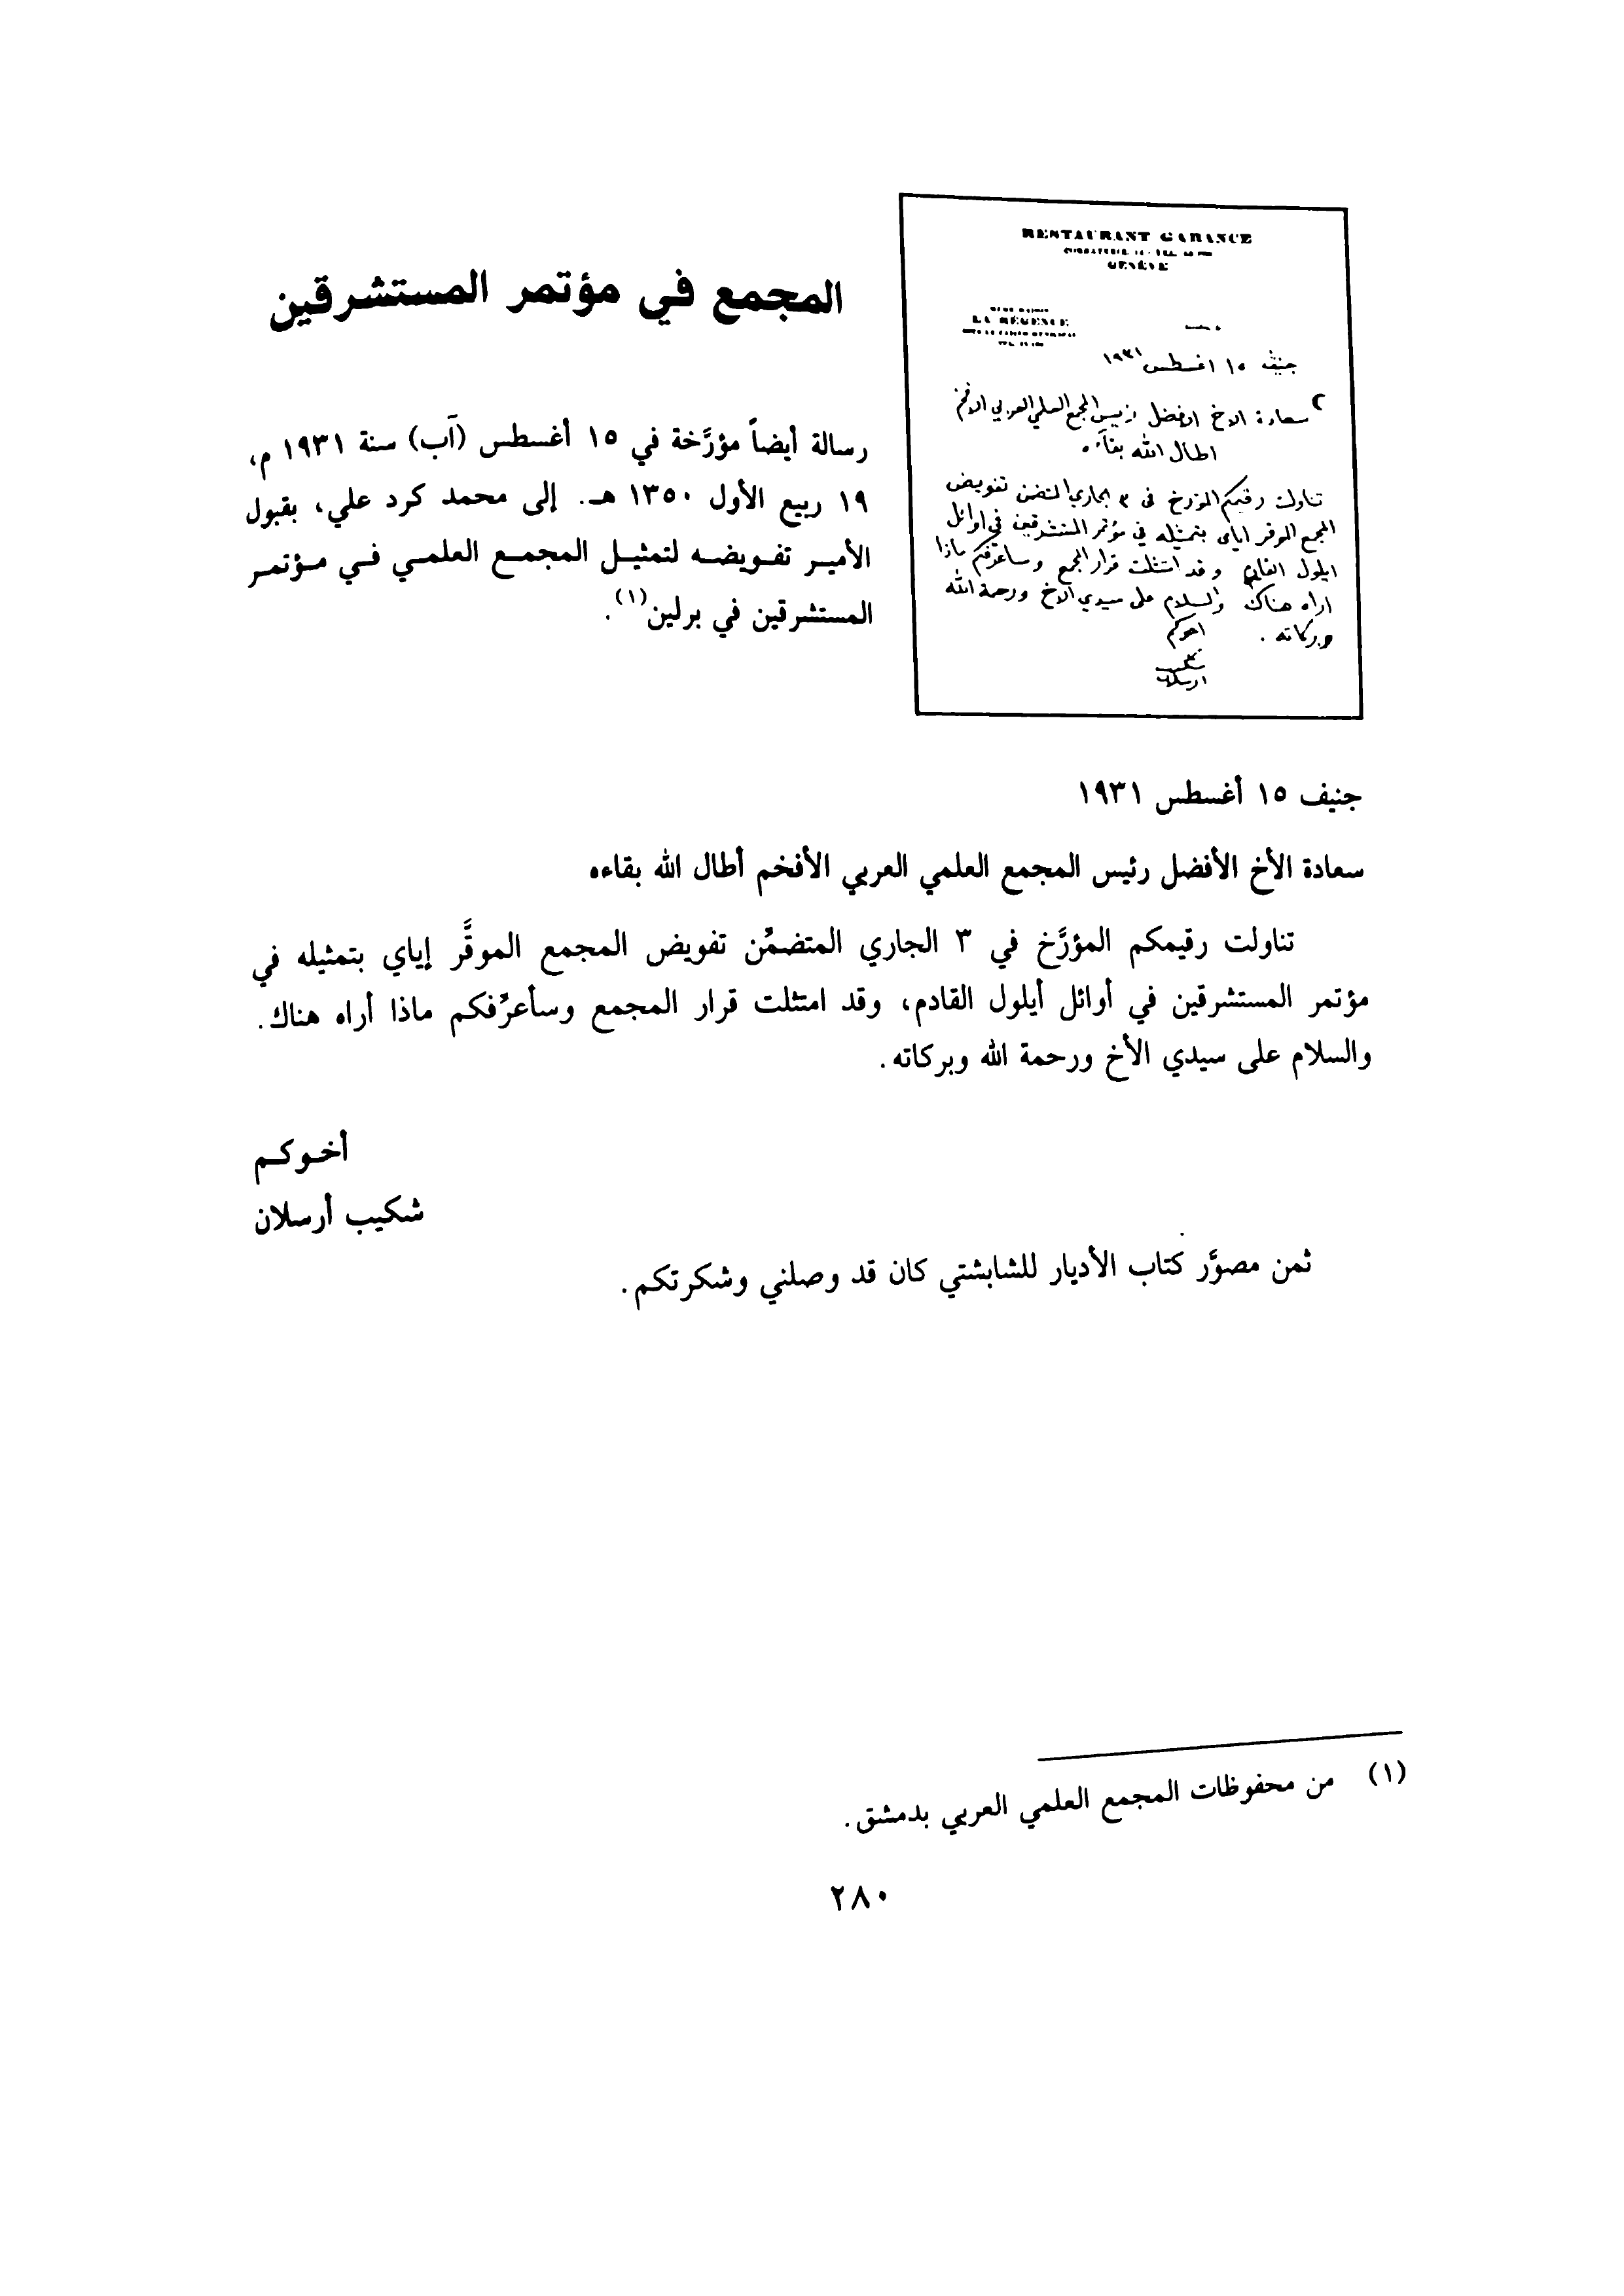 المجمع في مؤتمر المستشرقين
رسالة أيضاً مؤرَّخة في ١٥ أغسطس (آب) سنة ١٩٣١ م،
١٩ ربيع الأول ١٣٥٠ هـ. إلى محمد كرد علي، بقبول
الأمير تفويضه لتمثيل المجمع العلمي في مؤتمر
المستشرقين في برلين(١).
RESTAURANT GARANCE
GENÈVE
LA RÉGENCE
جنيف ١٥ اغسطس ١٩٣١
سعادة الاخ الافضل رئيس المجمع العلمي العربي الافخم
اطال الله بقاءه
تناولت رقيمكم المؤرخ في ٣ الجاري المتضمن تفويض
المجمع الموقر اياي بتمثيله في مؤتمر المستشرقين في اوائل
ايلول القادم وقد امتثلت قرار المجمع وساعرفكم ماذا
اراه هناك والسلام على سيدي الاخ ورحمة الله
وبركاته .
اخوكم
شكيب
ارسلان
جنيف ١٥ أغسطس ١٩٣١
سعادة الأخ الأفضل رئيس المجمع العلمي العربي الأفخم أطال الله بقاءه
تناولت رقيمكم المؤرَّخ في ٣ الجاري المتضمِّن تفويض المجمع الموقَّر إياي بتمثيله في
مؤتمر المستشرقين في أوائل أيلول القادم، وقد امتثلت قرار المجمع وسأعرِّفكم ماذا أراه هناك.
والسلام على سيدي الأخ ورحمة الله وبركاته.
أخوكم
شكيب أرسلان
ثمن مصوَّر كتاب الأديار للشابشتي كان قد وصلني وشكرتكم.
(١) من محفوظات المجمع العلمي العربي بدمشق.
٢٨٠